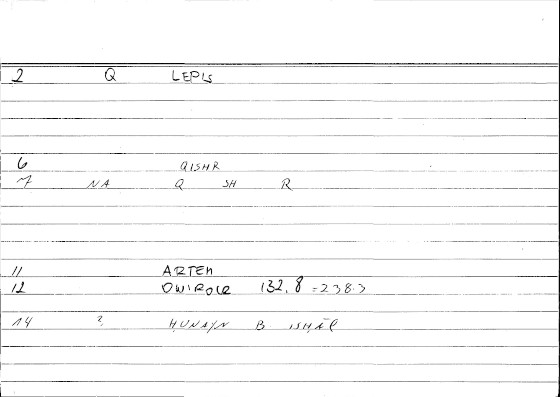 2 Q LEPIS
6 QISHR
7 NA Q SH R
11 ARTEM
12 132,8 = 238.3
14 ? ḤUNAYN B ISḤĀQ